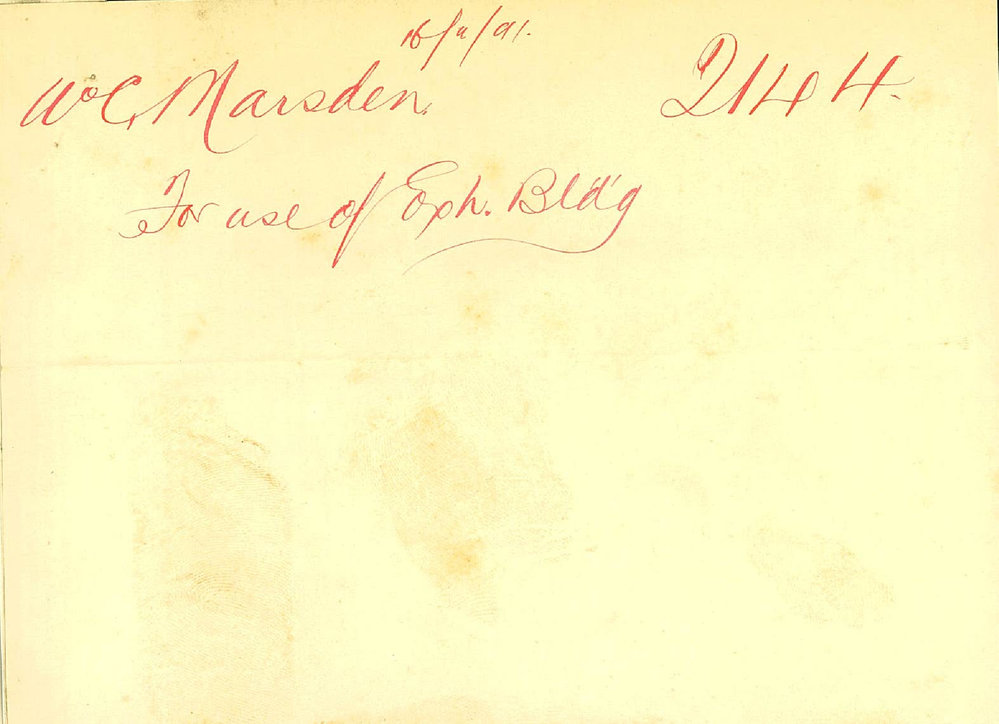 16/4/91.
Wo C, Marsden. 2144.
For use of Exh. Bld'g